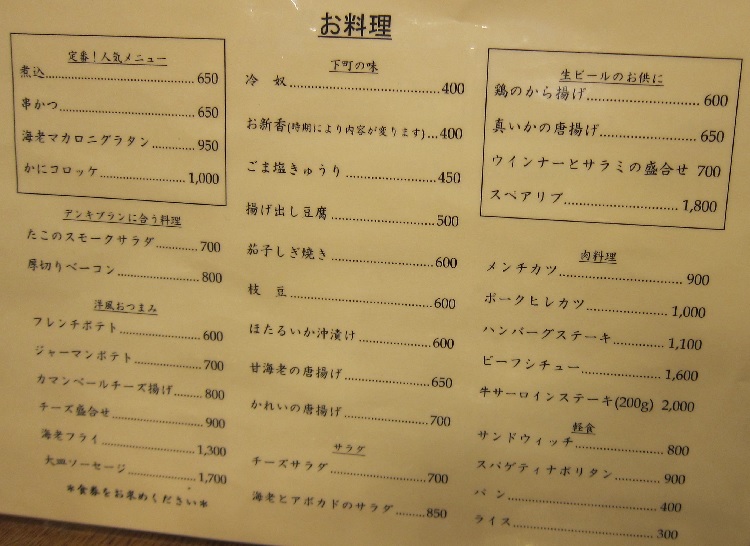 お料理
定番！人気メニュー
煮込 650
串かつ 650
海老マカロニグラタン 950
かにコロッケ 1,000
デンキブランに合う料理
たこのスモークサラダ 700
厚切りベーコン 800
洋風おつまみ
フレンチポテト 600
ジャーマンポテト 700
カマンベールチーズ揚げ 800
チーズ盛合せ 900
海老フライ 1,300
大皿ソーセージ 1,700
＊食券をお求めください＊
下町の味
冷 奴 400
お新香(時期により内容が変ります) 400
ごま塩きゅうり 450
揚げ出し豆腐 500
茄子しぎ焼き 600
枝 豆 600
ほたるいか沖漬け 600
甘海老の唐揚げ 650
かれいの唐揚げ 700
サラダ
チーズサラダ 700
海老とアボカドのサラダ 850
生ビールのお供に
鶏のから揚げ 600
真いかの唐揚げ 650
ウインナーとサラミの盛合せ 700
スペアリブ 1,800
肉料理
メンチカツ 900
ポークヒレカツ 1,000
ハンバーグステーキ 1,100
ビーフシチュー 1,600
牛サーロインステーキ(200g) 2,000
軽食
サンドウィッチ 800
スパゲティナポリタン 900
パン 400
ライス 300